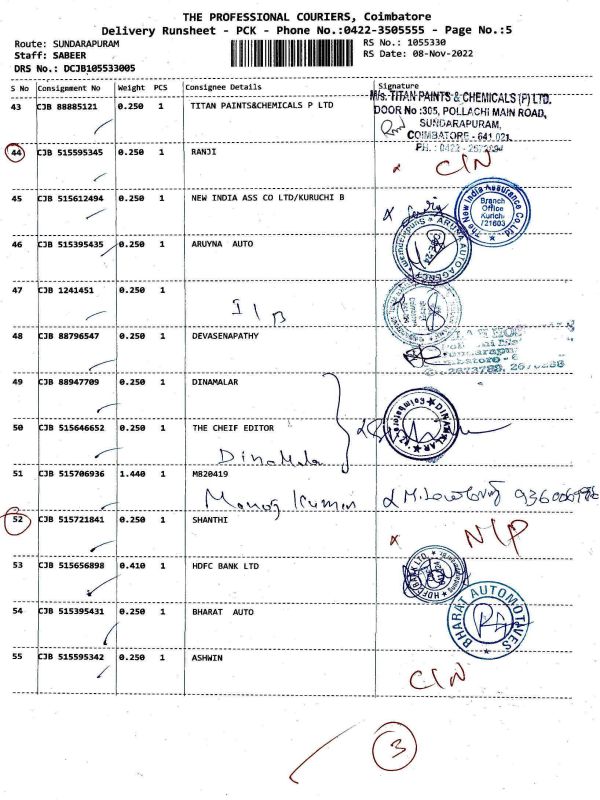 THE PROFESSIONAL COURIERS, Coimbatore
Delivery Runsheet - PCK - Phone No.:0422-3505555 - Page No.:5
Route: SUNDARAPURAM
RS No.: 1055330
Staff: SABEER
RS Date: 08-Nov-2022
DRS No.: DCJB105533005
S No Consignment No Weight PCS Consignee Details Signature
43 CJB 88885121 0.250 1 TITAN PAINTS&CHEMICALS P LTD
M/s. TITAN PAINTS & CHEMICALS (P) LTD.
DOOR No :305, POLLACHI MAIN ROAD,
SUNDARAPURAM,
COIMBATORE - 641 021.
44 CJB 515595345 0.250 1 RANJI
x CIN
45 CJB 515612494 0.250 1 NEW INDIA ASS CO LTD/KURUCHI B
The New India Assurance Co.Ltd.
Branch
Office
Kurichi
721603
46 CJB 515395435 0.250 1 ARUYNA AUTO
ARUNA AUTO AGENCY
47 CJB 1241451 0.250 1
48 CJB 88796547 0.250 1 DEVASENAPATHY
49 CJB 88947709 0.250 1 DINAMALAR
DINAMALAR
Coimbatore
50 CJB 515646652 0.250 1 THE CHEIF EDITOR
Dinamala
51 CJB 515706936 1.440 1 MB20419
Manoj Kumar
52 CJB 515721841 0.250 1 SHANTHI
x N/P
53 CJB 515656898 0.410 1 HDFC BANK LTD
HDFC BANK LTD.
54 CJB 515395431 0.250 1 BHARAT AUTO
BHARAT AUTOMOTIVES
55 CJB 515595342 0.250 1 ASHWIN
CIN
3